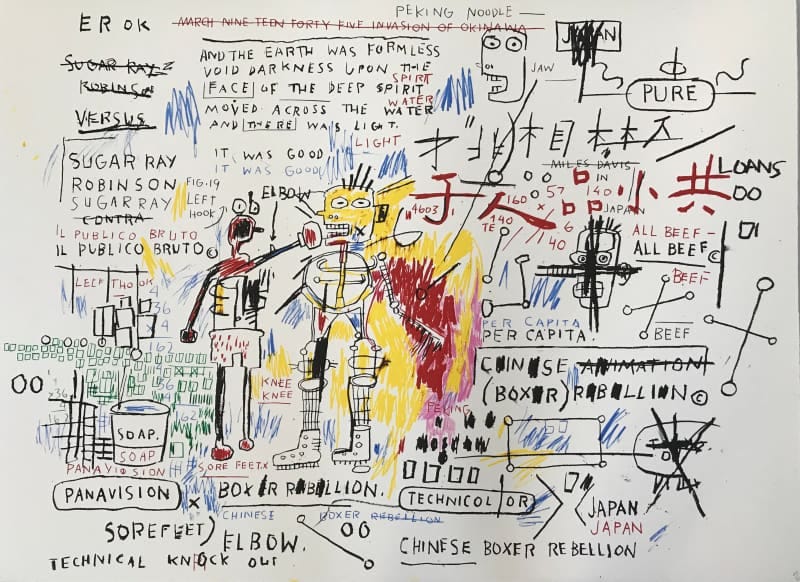 PEKING NOODLE
EROK
MARCH NINE TEEN FORTY FIVE INVASION OF OKINAWA
SUGAR RAY
ROBINSON
VERSUS
AND THE EARTH WAS FORMLESS
VOID DARKNESS UPON THE
FACE OF THE DEEP SPIRIT
SPIRIT
MOVED ACROSS THE WATER
WATER
AND THERE WAS LIGHT.
LIGHT
IT WAS GOOD
IT WAS GOOD
JAW
JAPAN
PURE
SUGAR RAY
ROBINSON
SUGAR RAY
CONTRA
FIG.19
LEFT
HOOK
ELBOW
IL PUBLICO BRUTO
IL PUBLICO BRUTO©
木目
MILES DAVIS
IN
JAPAN
人品小共
LOANS
OO
4603
160
57
140
140
TE
x
6
40
ALL BEEF
ALL BEEF©
BEEF
BEEF
PER CAPITA
PER CAPITA.
LEEF THOOK
4
36
x 4
162
36
162
OO
KNEE
KNEE
SOAP.
SOAP
PANAVISION
PANAVISION
SORE FEETX
x BOXER REBELLION.
CHINESE BOXER REBELLION
CHINESE ANIMATION
(BOXER) REBELLION©
PEKING
TECHNICOLOR
JAPAN
JAPAN
SOREFEET)
ELBOW.
OO
TECHNICAL KNOCK OUT
CHINESE BOXER REBELLION